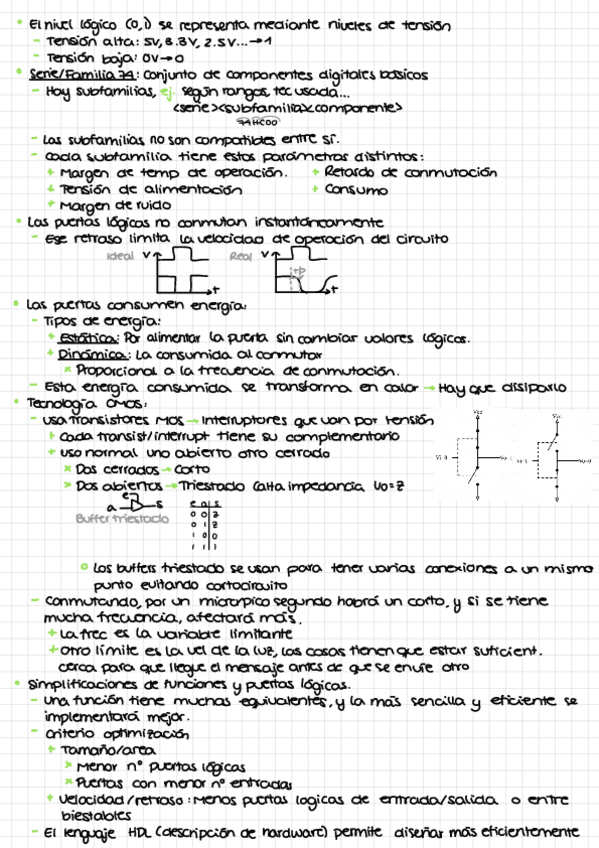 • El nivel lógico (0,1) se representa mediante niveles de tensión
- Tensión alta: 5V, 3.3V, 2.5V... → 1
- Tensión baja: 0V → 0
• Serie/Familia 74: Conjunto de componentes digitales básicos
- Hay subfamilias, ej. según rangos, tec usada...
<serie><subfamilia><componente>
74HC00
- Las subfamilias no son compatibles entre sí.
- Cada subfamilia tiene estos parámetros distintos:
+ Margen de temp de operación. + Retardo de conmutación
+ Tensión de alimentación + Consumo
+ Margen de ruido
• Las puertas lógicas no conmutan instantáneamente
- Ese retraso limita la velocidad de operación del circuito
Ideal V Real V
tp
t t
• Las puertas consumen energía:
- Tipos de energía:
+ Estática: Por alimentar la puerta sin cambiar valores lógicos.
+ Dinámica: La consumida al conmutar
× Proporcional a la frecuencia de conmutación.
- Esta energía consumida se transforma en calor → Hay que disiparlo
• Tecnología CMOS:
- Usa transistores MOS → Interruptores que van por tensión
+ Cada transist/interrupt tiene su complementario
+ Uso normal uno abierto otro cerrado
× Dos cerrados → Corto
× Dos abiertos → Triestado (alta impedancia Vo=Z
Vcc Vcc
e
a s
Buffer triestado
e a s
0 0 Z
0 1 Z
1 0 0
1 1 1
o Los buffers triestado se usan para tener varias conexiones a un mismo
punto evitando cortocircuito
- Conmutando, por un microrpico segundo habrá un corto, y si se tiene
mucha frecuencia, afectará más.
+ La frec es la variable limitante
+ Otro límite es la vel de la luz, las cosas tienen que estar suficient.
cerca para que llegue el mensaje antes de que se envíe otro
• Simplificaciones de funciones y puertas lógicas.
- Una función tiene muchas equivalentes, y la más sencilla y eficiente se
implementará mejor.
- Criterio optimización
+ Tamaño/area
× Menor nº puertas lógicas
× Puertas con menor nº entradas
+ Velocidad/retraso: Menos puertas logicas de entrada/salida o entre
biestables
- El lenguaje HDL (descripción de hardware) permite diseñar más eficientemente